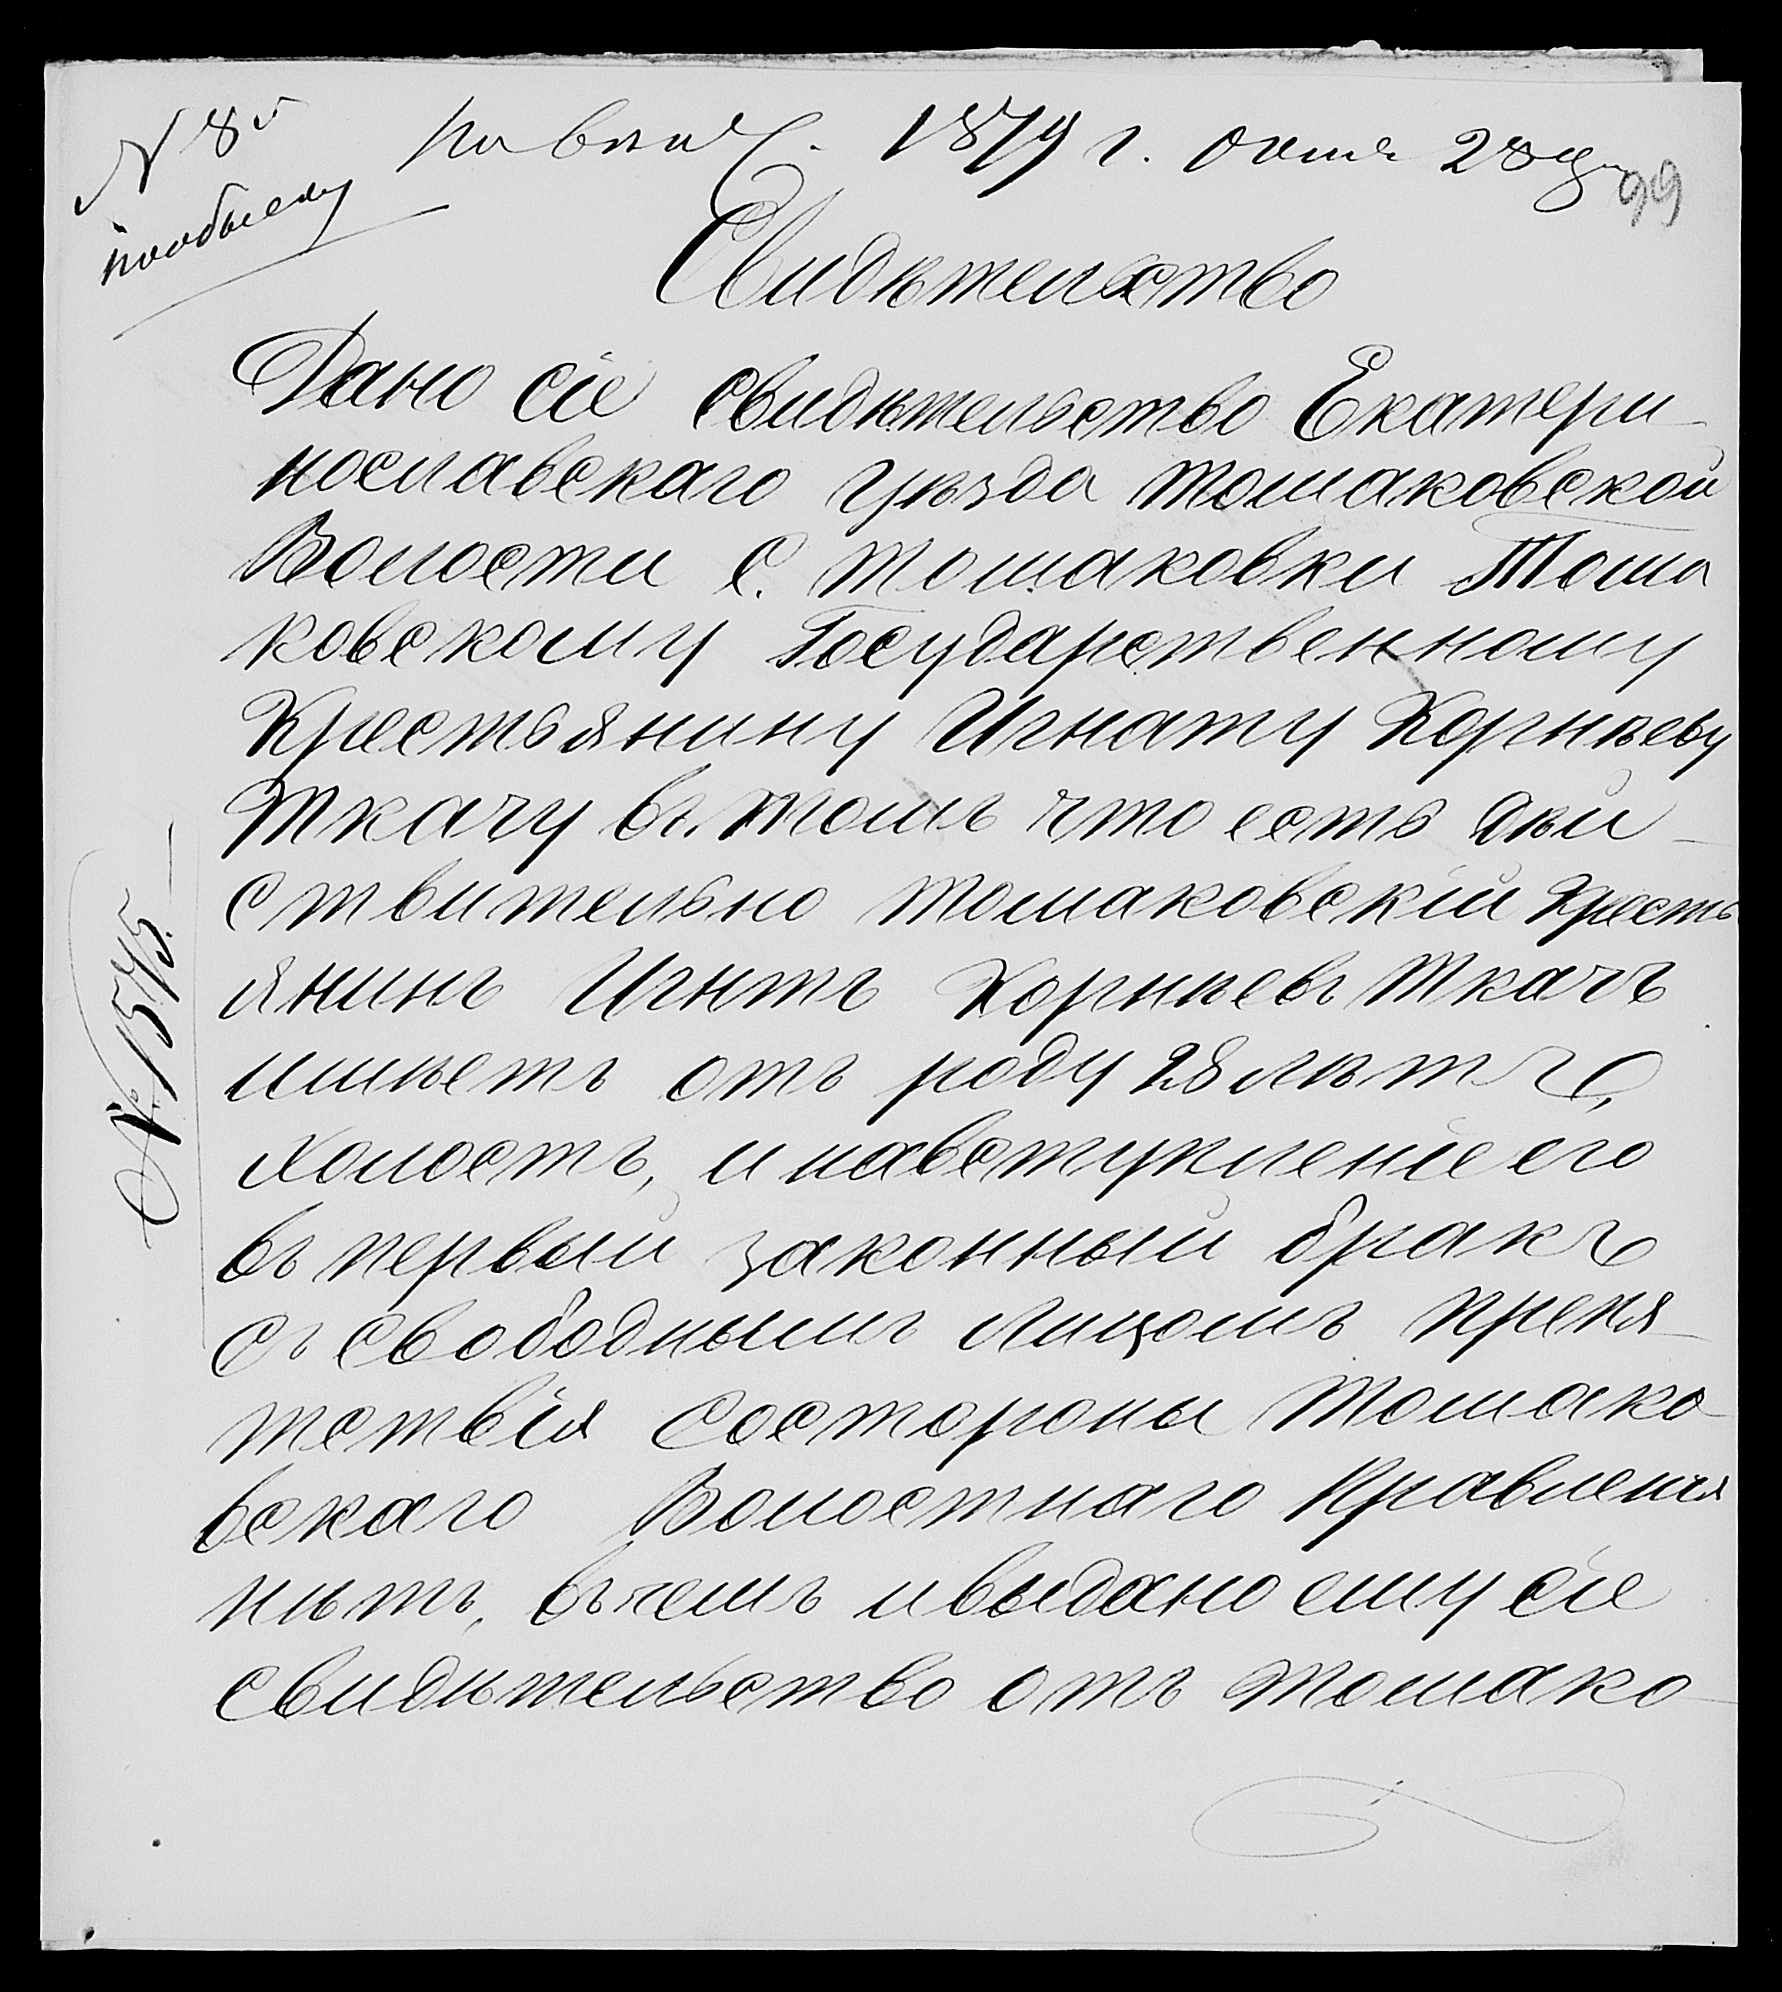 N 8й 1879 г. 28 99
пообыску
Свидѣтельство
Дано сіе свидѣтельство Екатери-
нославскаго уѣзда томаковской
Волости с. томаковки Тома
ковскому Государственному
Крестьянину Игнату Корнѣеву
Ткачу въ томъ что есть дѣй-
ствительно томаковскій Кресть
янинъ Игнтъ Корнѣевъ Ткачъ
имѣетъ отъ роду 28 лѣтъ,
холостъ, и навступленіе его
въ первый законный бракъ
съ свободнымъ лицомъ препя-
тствія состороны томако-
вскаго Волостнаго Правленія
нѣтъ, въ чемъ и выдано ему сіе
свидѣтельство отъ томако-
№ 1575.